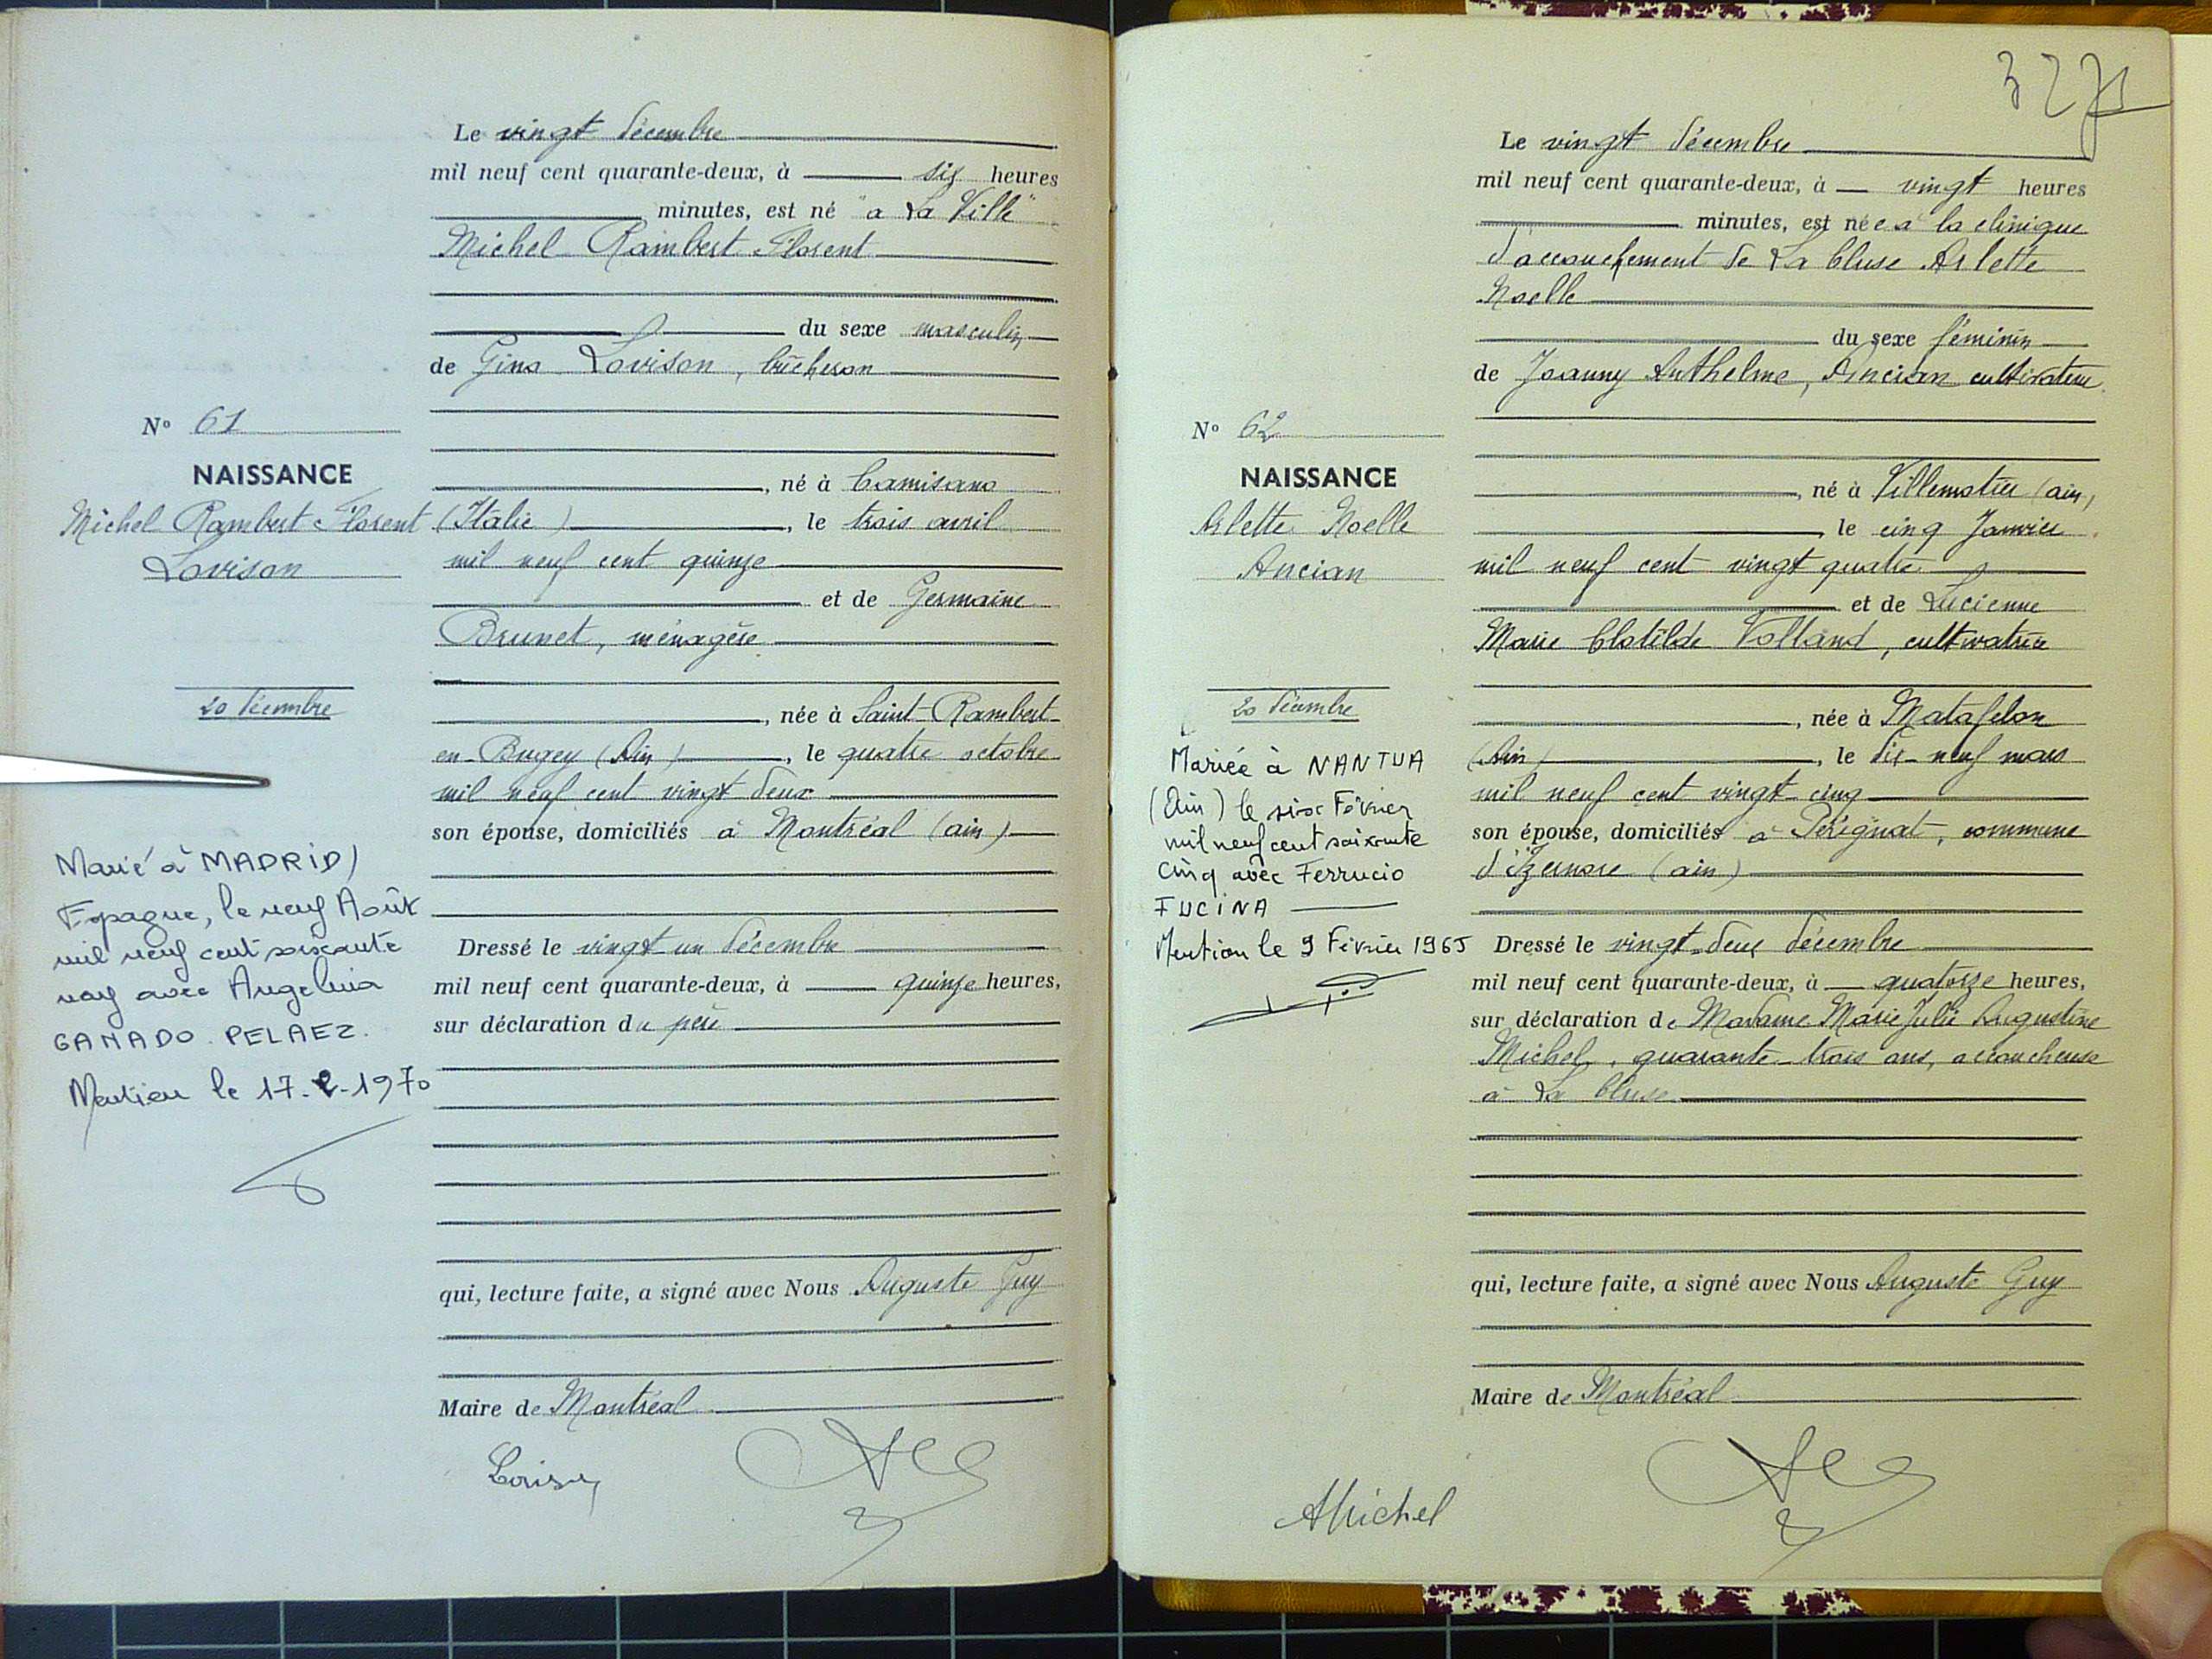 Le vingt décembre
mil neuf cent quarante-deux, à six heures
minutes, est né "a La Ville"
Michel Rambert Florent
du sexe masculin
de Gino Lovison, bûcheron
N° 61
NAISSANCE
Michel Rambert Florent
Lovison
20 décembre
né à Camisano
(Italie), le trois avril
mil neuf cent quinze
et de Germaine
Brunet, ménagère
, née à Saint-Rambert-
en-Bugey (Ain), le quatre octobre
mil neuf cent vingt deux
son épouse, domiciliés à Montréal (ain)
Marié à MADRID)
Espagne, le neuf Août
mil neuf cent soixante
neuf avec Angelina
GANADO. PELAEZ.
Mention le 17. -1970
Dressé le vingt un décembre
mil neuf cent quarante-deux, à quinze heures,
sur déclaration du père
qui, lecture faite, a signé avec Nous Auguste Guy
Maire de Montréal
327
Le vingt décembre
mil neuf cent quarante-deux, à vingt heures
minutes, est née à la clinique
d'accouchement de La Cluse Arlette
Noelle
du sexe féminin
de Joanny Anthelme, Ancian cultivateur
N° 62
NAISSANCE
Arlette Noelle
Ancian
20 décembre
, né à Villemotier (ain)
, le cinq Janvier
mil neuf cent vingt quatre
et de Lucienne
Marie Clotilde Volland, cultivatrice
, née à Matafelon
(Ain), le dix-neuf mars
mil neuf cent vingt-cinq
son épouse, domiciliés à Pérignat, commune
d'Izernore (ain)
Mariée à NANTUA
(Ain) le six Février
mil neuf cent soixante
cinq avec Ferrucio
FUCINA
Mention le 9 Février 1965
Dressé le vingt-deux décembre
mil neuf cent quarante-deux, à quatorze heures,
sur déclaration de Madame Marie Julie Augustine
Michel, quarante-trois ans, accoucheuse
à La Cluse
qui, lecture faite, a signé avec Nous Auguste Guy
Maire de Montréal
AMichel